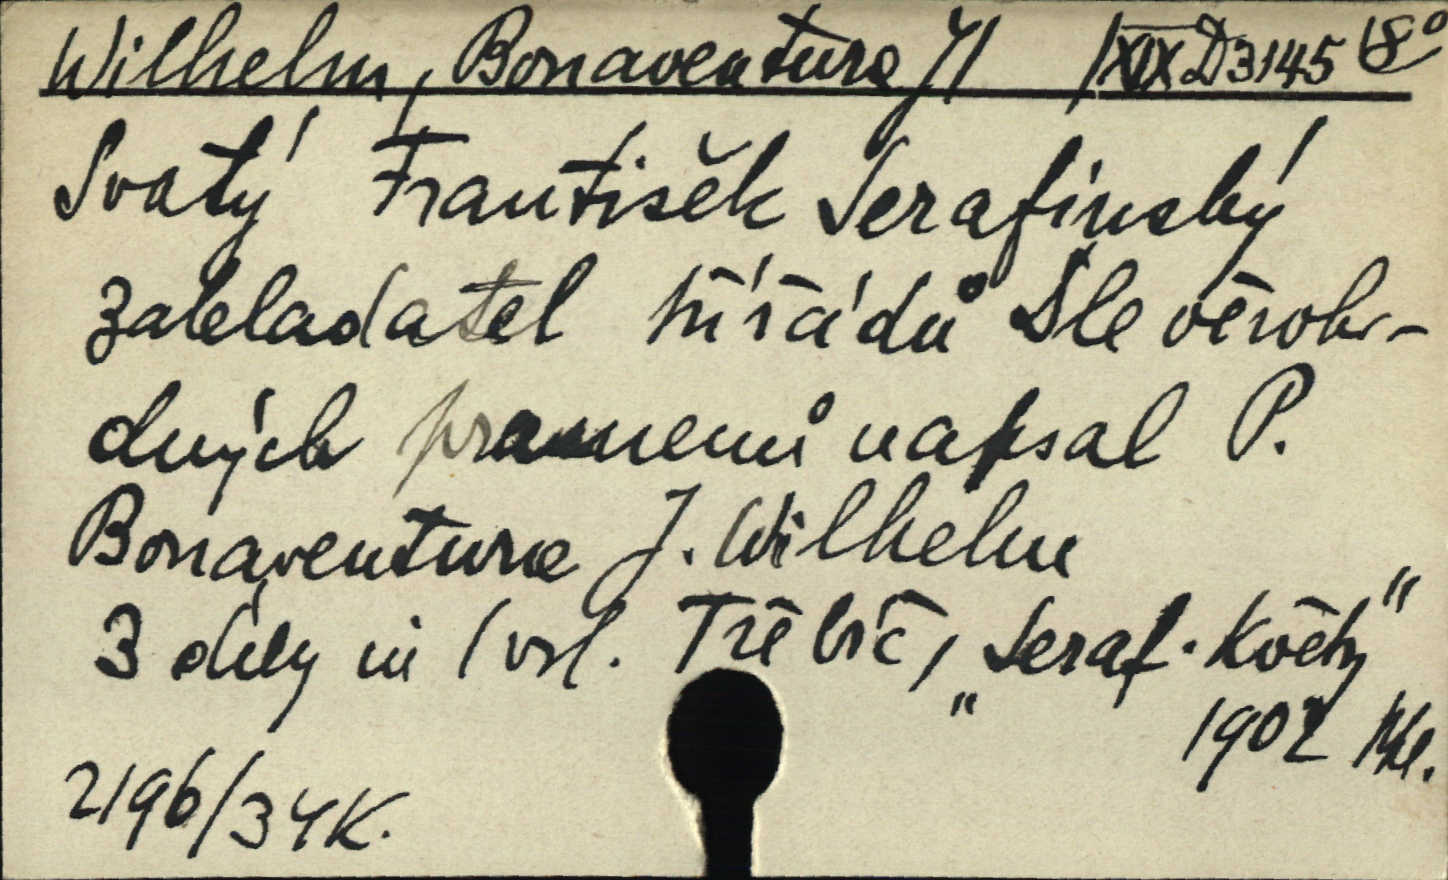 Wilhelm, Bonaventura J. XIX D 3145 8°
Svatý František Serafinský
zakladatel tří řádů Dle věroho-
dných pramenů napsal P.
Bonaventura J. Wilhelm
3 díly in 1 vol. Třebíč, „Seraf. Květy"
1902
2196/34K.